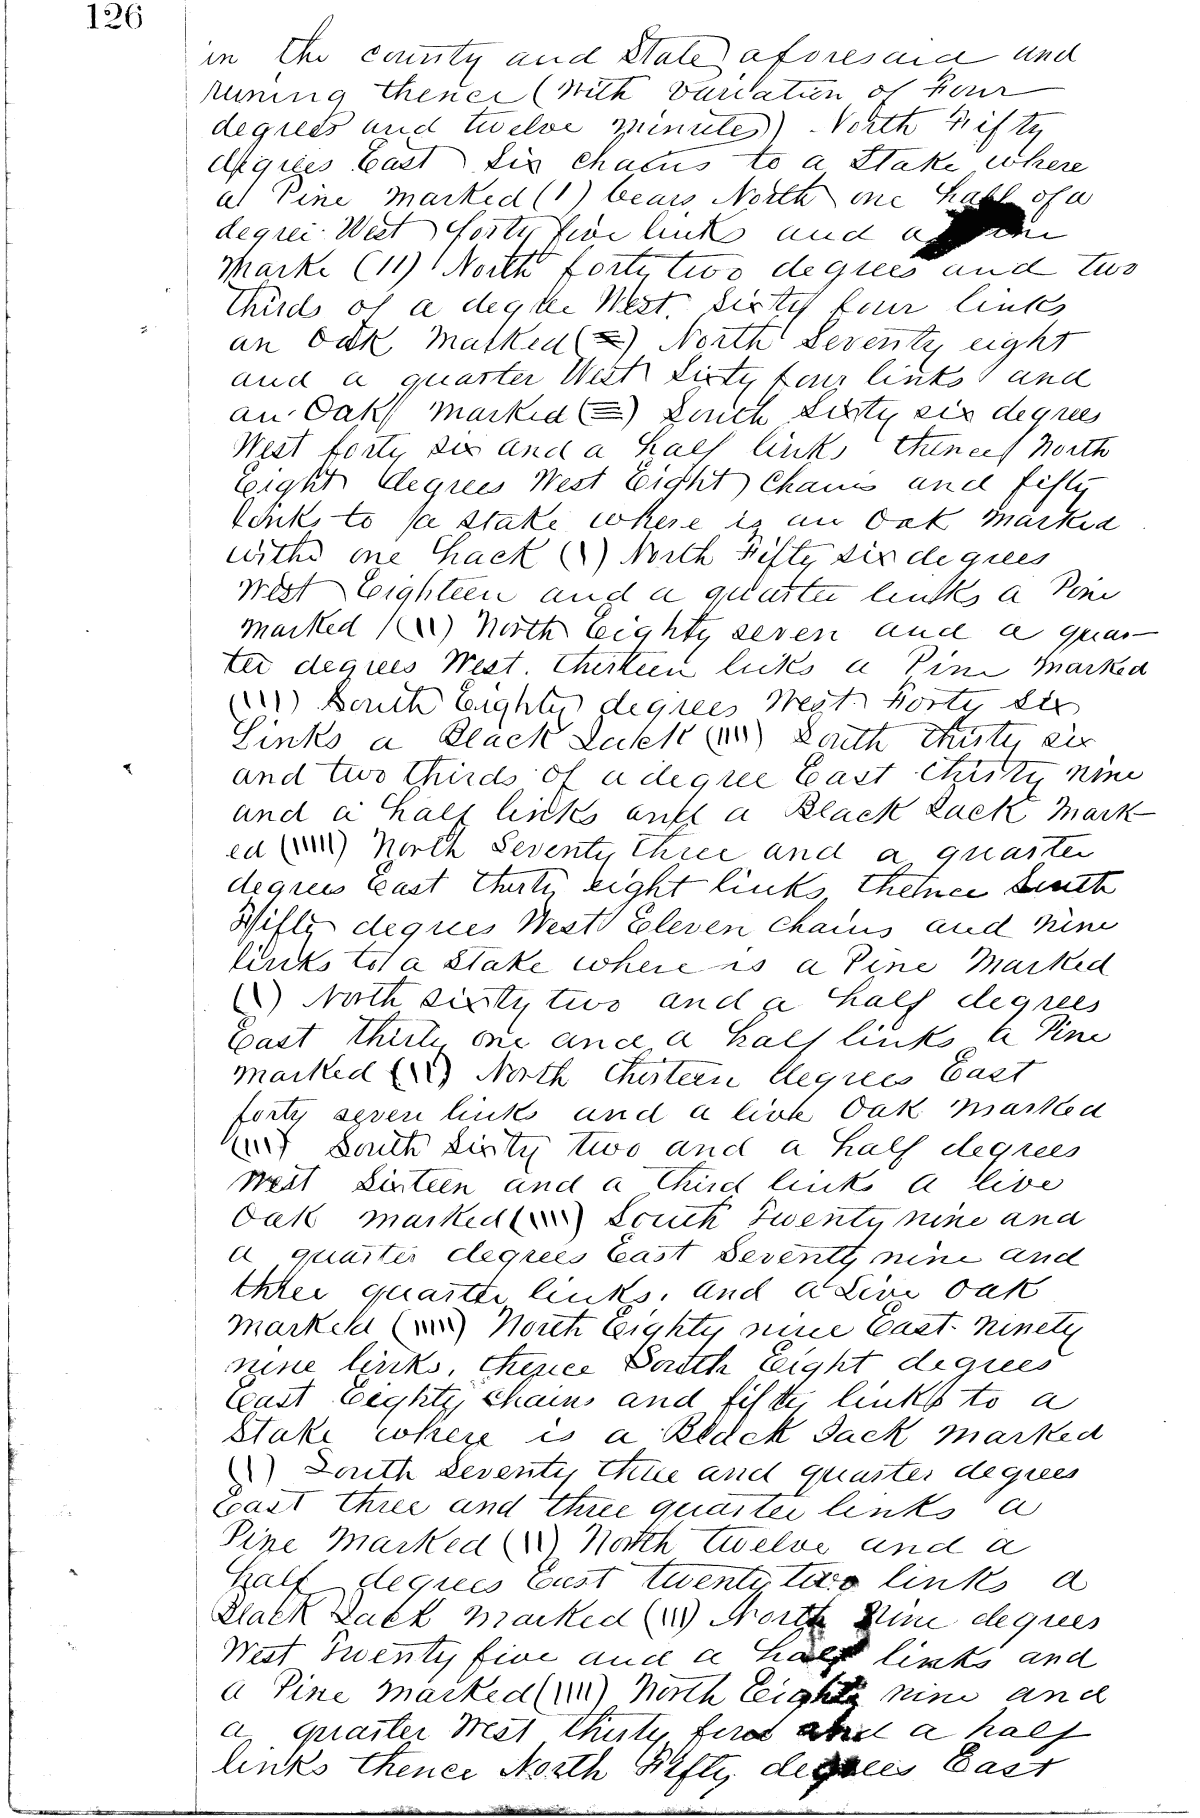 126
in the county and State aforesaid and
runing thence (With variation of Four
degrees and twelve minutes) North Fifty
degrees East Six chains to a Stake where
a Pine marked (1) bears North one half of a
degree West forty five links and a
Marke (11) North forty two degrees and two
thirds of a degree West. Sixty four links
an Oak Marked (=) North Seventy eight
and a quarter West Sixty four links and
an Oak marked (≡) South Sixty six degrees
West forty six and a half links thence North
Eight degrees West Eight Chains and fifty
links to a stake where is an Oak marked
with one hack (\) North Fifty six degrees
West Eighteen and a quarter links a Pine
marked (\\) North Eighty seven and a quar-
ter degrees West. thirteen links a Pine marked
(\\\) South Eighty degrees West Forty Six
Links a Black Jack (\\\\) South thirty six
and two thirds of a degree East thirty nine
and a half links and a Black Jack Mark-
ed (\\\\\) North Seventy three and a quarter
degrees East thirty eight links, thence South
Fifty degrees West Eleven chains and nine
links to a Stake where is a Pine Marked
(\) North sixty two and a half degrees
East thirty one and a half links a Pine
marked (\\) North thirteen degrees East
forty seven links and a live Oak marked
(\\\) South Sixty two and a half degrees
West Sixteen and a third links a live
Oak marked (\\\\) South Twenty nine and
a quarter degrees East Seventy nine and
three quarter links. and a Live Oak
marked (\\\\\) North Eighty nine East ninety
nine links. thence South Eight degrees
East Eighty chains and fifty links to a
Stake where is a Black Jack marked
(\) South Seventy three and quarter degrees
East three and three quarter links a
Pine Marked (\\) North twelve and a
half degrees East twenty two links a
Black Jack marked (\\\) North Nine degrees
West Twenty five and a half links and
a Pine marked (\\\\) North Eighty nine and
a quarter West thirty four and a half
links thence North Fifty degrees East